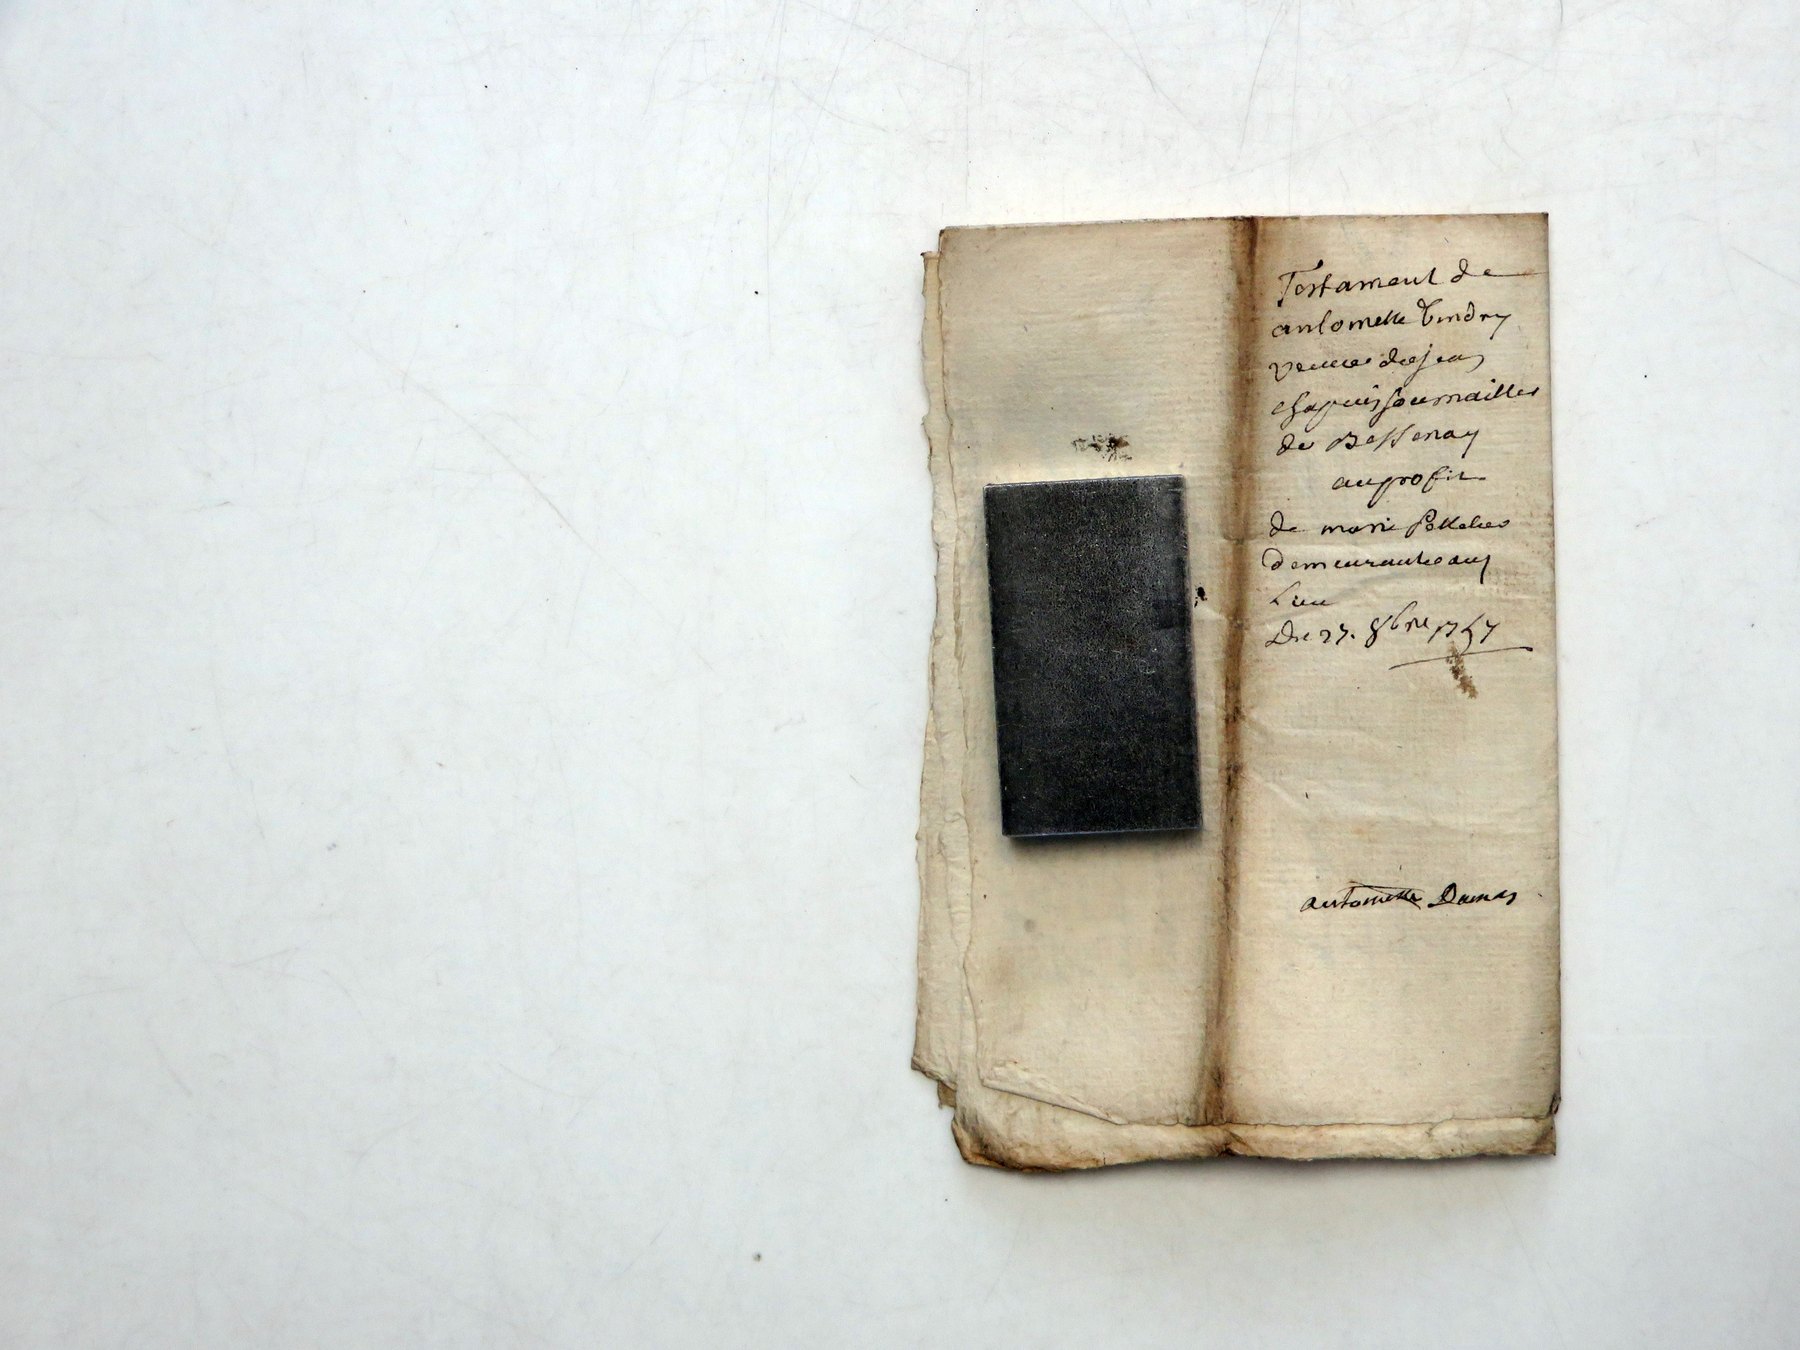 Testament de
antoinette Vindry
veuve de jean
chapuis journaillier
de Bessenay
au profit
de marie
demeurante au
Lieu
Du 27. 8bre 1757
antoinette Dumas